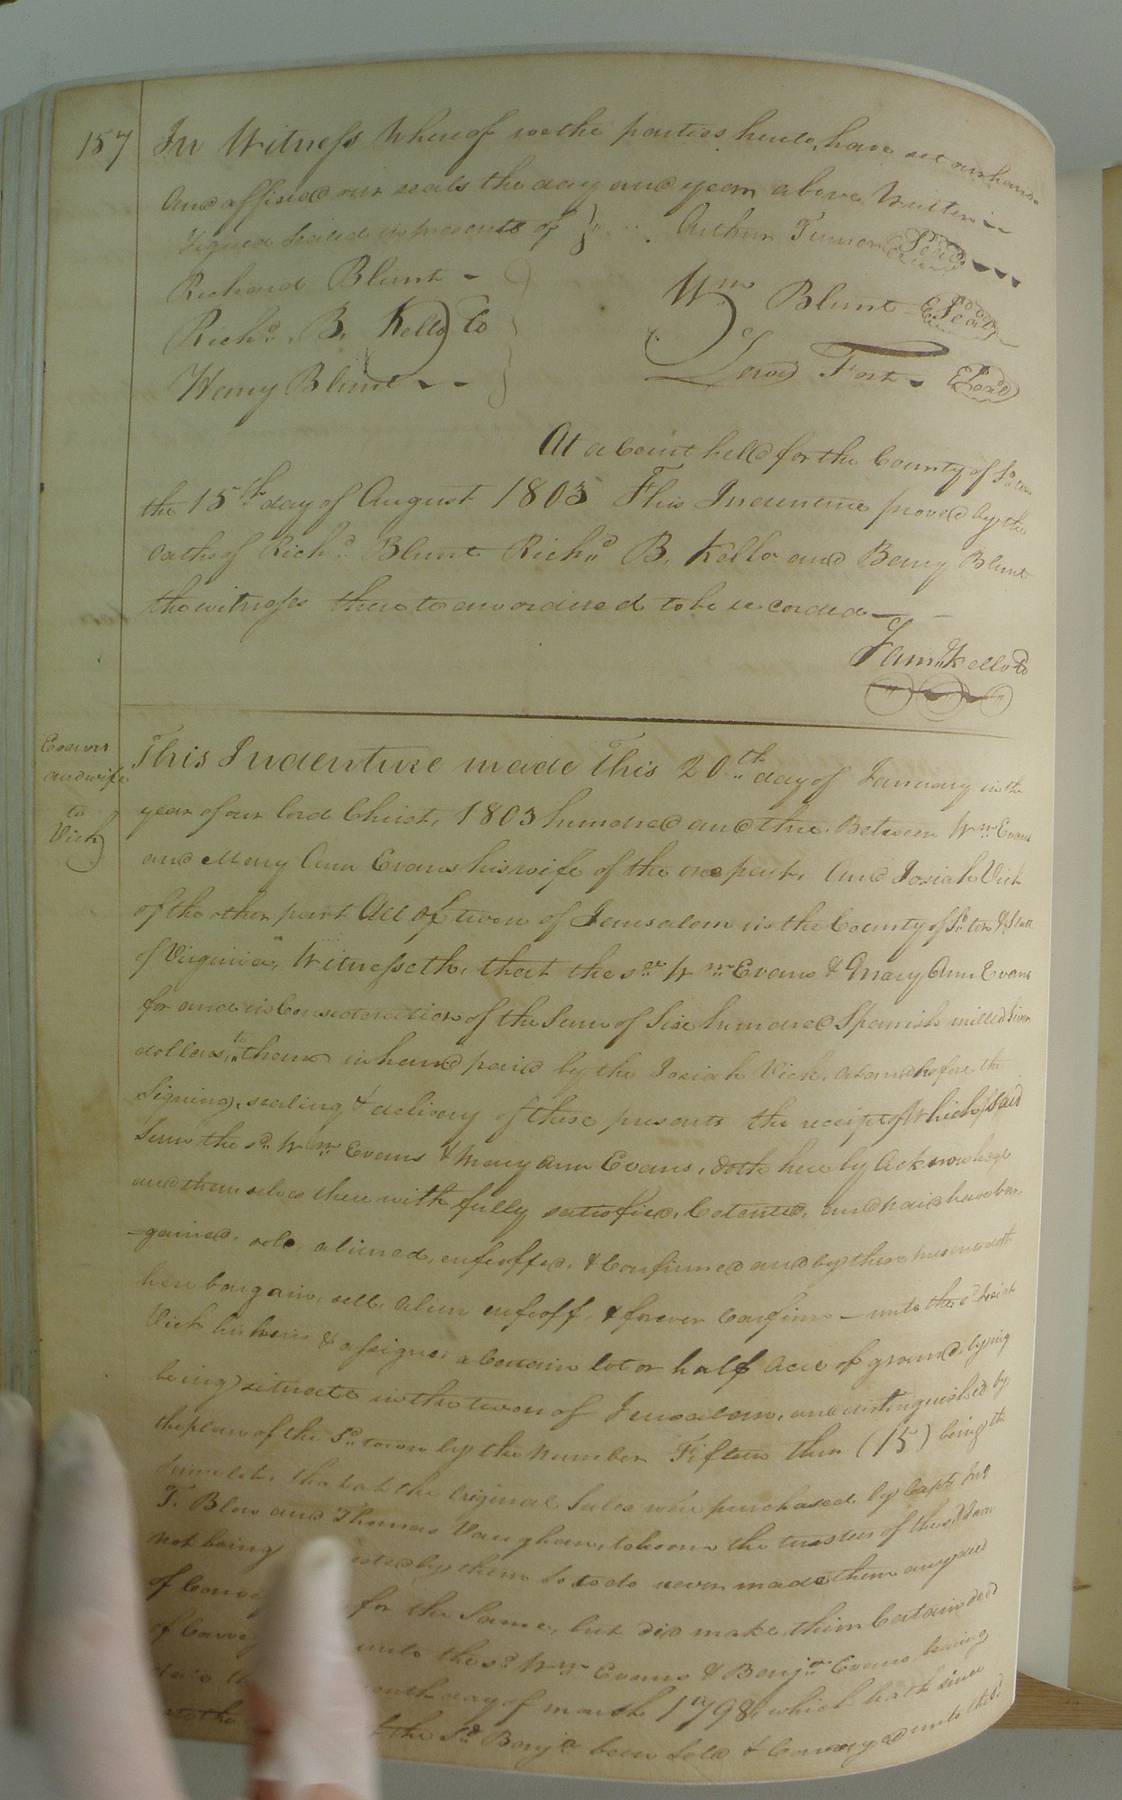 157
In Witness Whereof we the parties hereto, have set our hands
And affixed our seals the day and year above Written
Signed Sealed in presents of } Arthur Turner Seal
Richard Blunt
Wm Blunt Seal
Richd. B. Kello
Lewis Fort Seal
Henry Blunt
At a Court held for the County of So.ton
the 15th day of August 1803 This Indenture proved by the
oaths of Richd. Blunt Richd. B. Kello and Blunt
the witnesses thereto ordered to be recorded
Kello
Evans
and wife
to
Vick
This Indenture made This 20th day of January in the
year of our lord Christ, 1803 hundred and three. Between Wm Evans
and Mary Ann Evans his wife of the one part. And Josiah Vick
of the other part All of town of Jerusalem in the County of So.ton & State
of Virginia, Witnesseth, that the sd. Wm Evans & Mary Ann Evans
for and in Consideration of the Sum of Six hundred Spanish milled Silver
dollars, to them in hand paid by the Josiah Vick, at and before the
Signing, sealing & delivery of these presents the receipt of Which said
Sum the sd. Wm Evans & Mary Ann Evans, doth here by Acknowledge
and them selves there with fully satisfied, Contented, and paid have bar
-gained, sold, aliened, enfeoffed, & Confirmed and by these presents doth
here bargain, sell, Alien enfeoff, & forever Confirm – unto the sd. Josiah
Vick his heirs & assigns, a Certain lot or half Acre of ground, lying
being situate in the town of Jerusalem, and distinguished by
the plan of the sd. town by the Number Fifteen thus (15) being the
that at the Original Sales were purchased by Capt.
T. Blow and Thomas Vaughan, to whom the trustees of the sd. Town
not being by them so to do never made them any deed
of for the Same, but did make them Certain deed
of unto the sd. Wm Evans & Benja. Evans bearing
date the day of march 1798, which hath since
the sd. Benja. been Sold & Conveyed unto the sd.